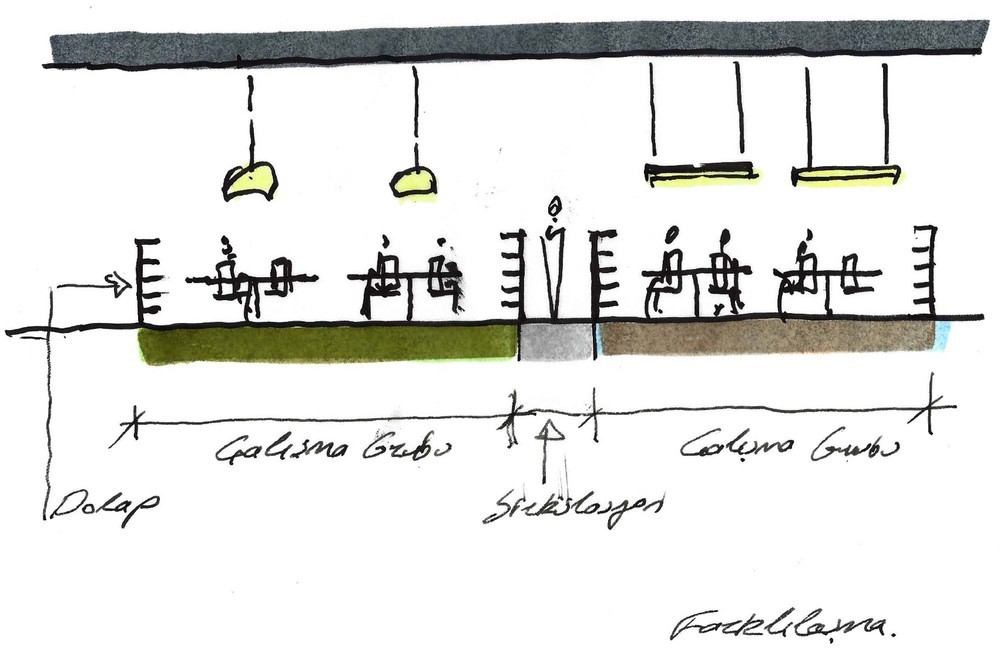 Çalışma Grubu
Çalışma Grubu
Dolap
Sirkülasyon
Farklılaşma.